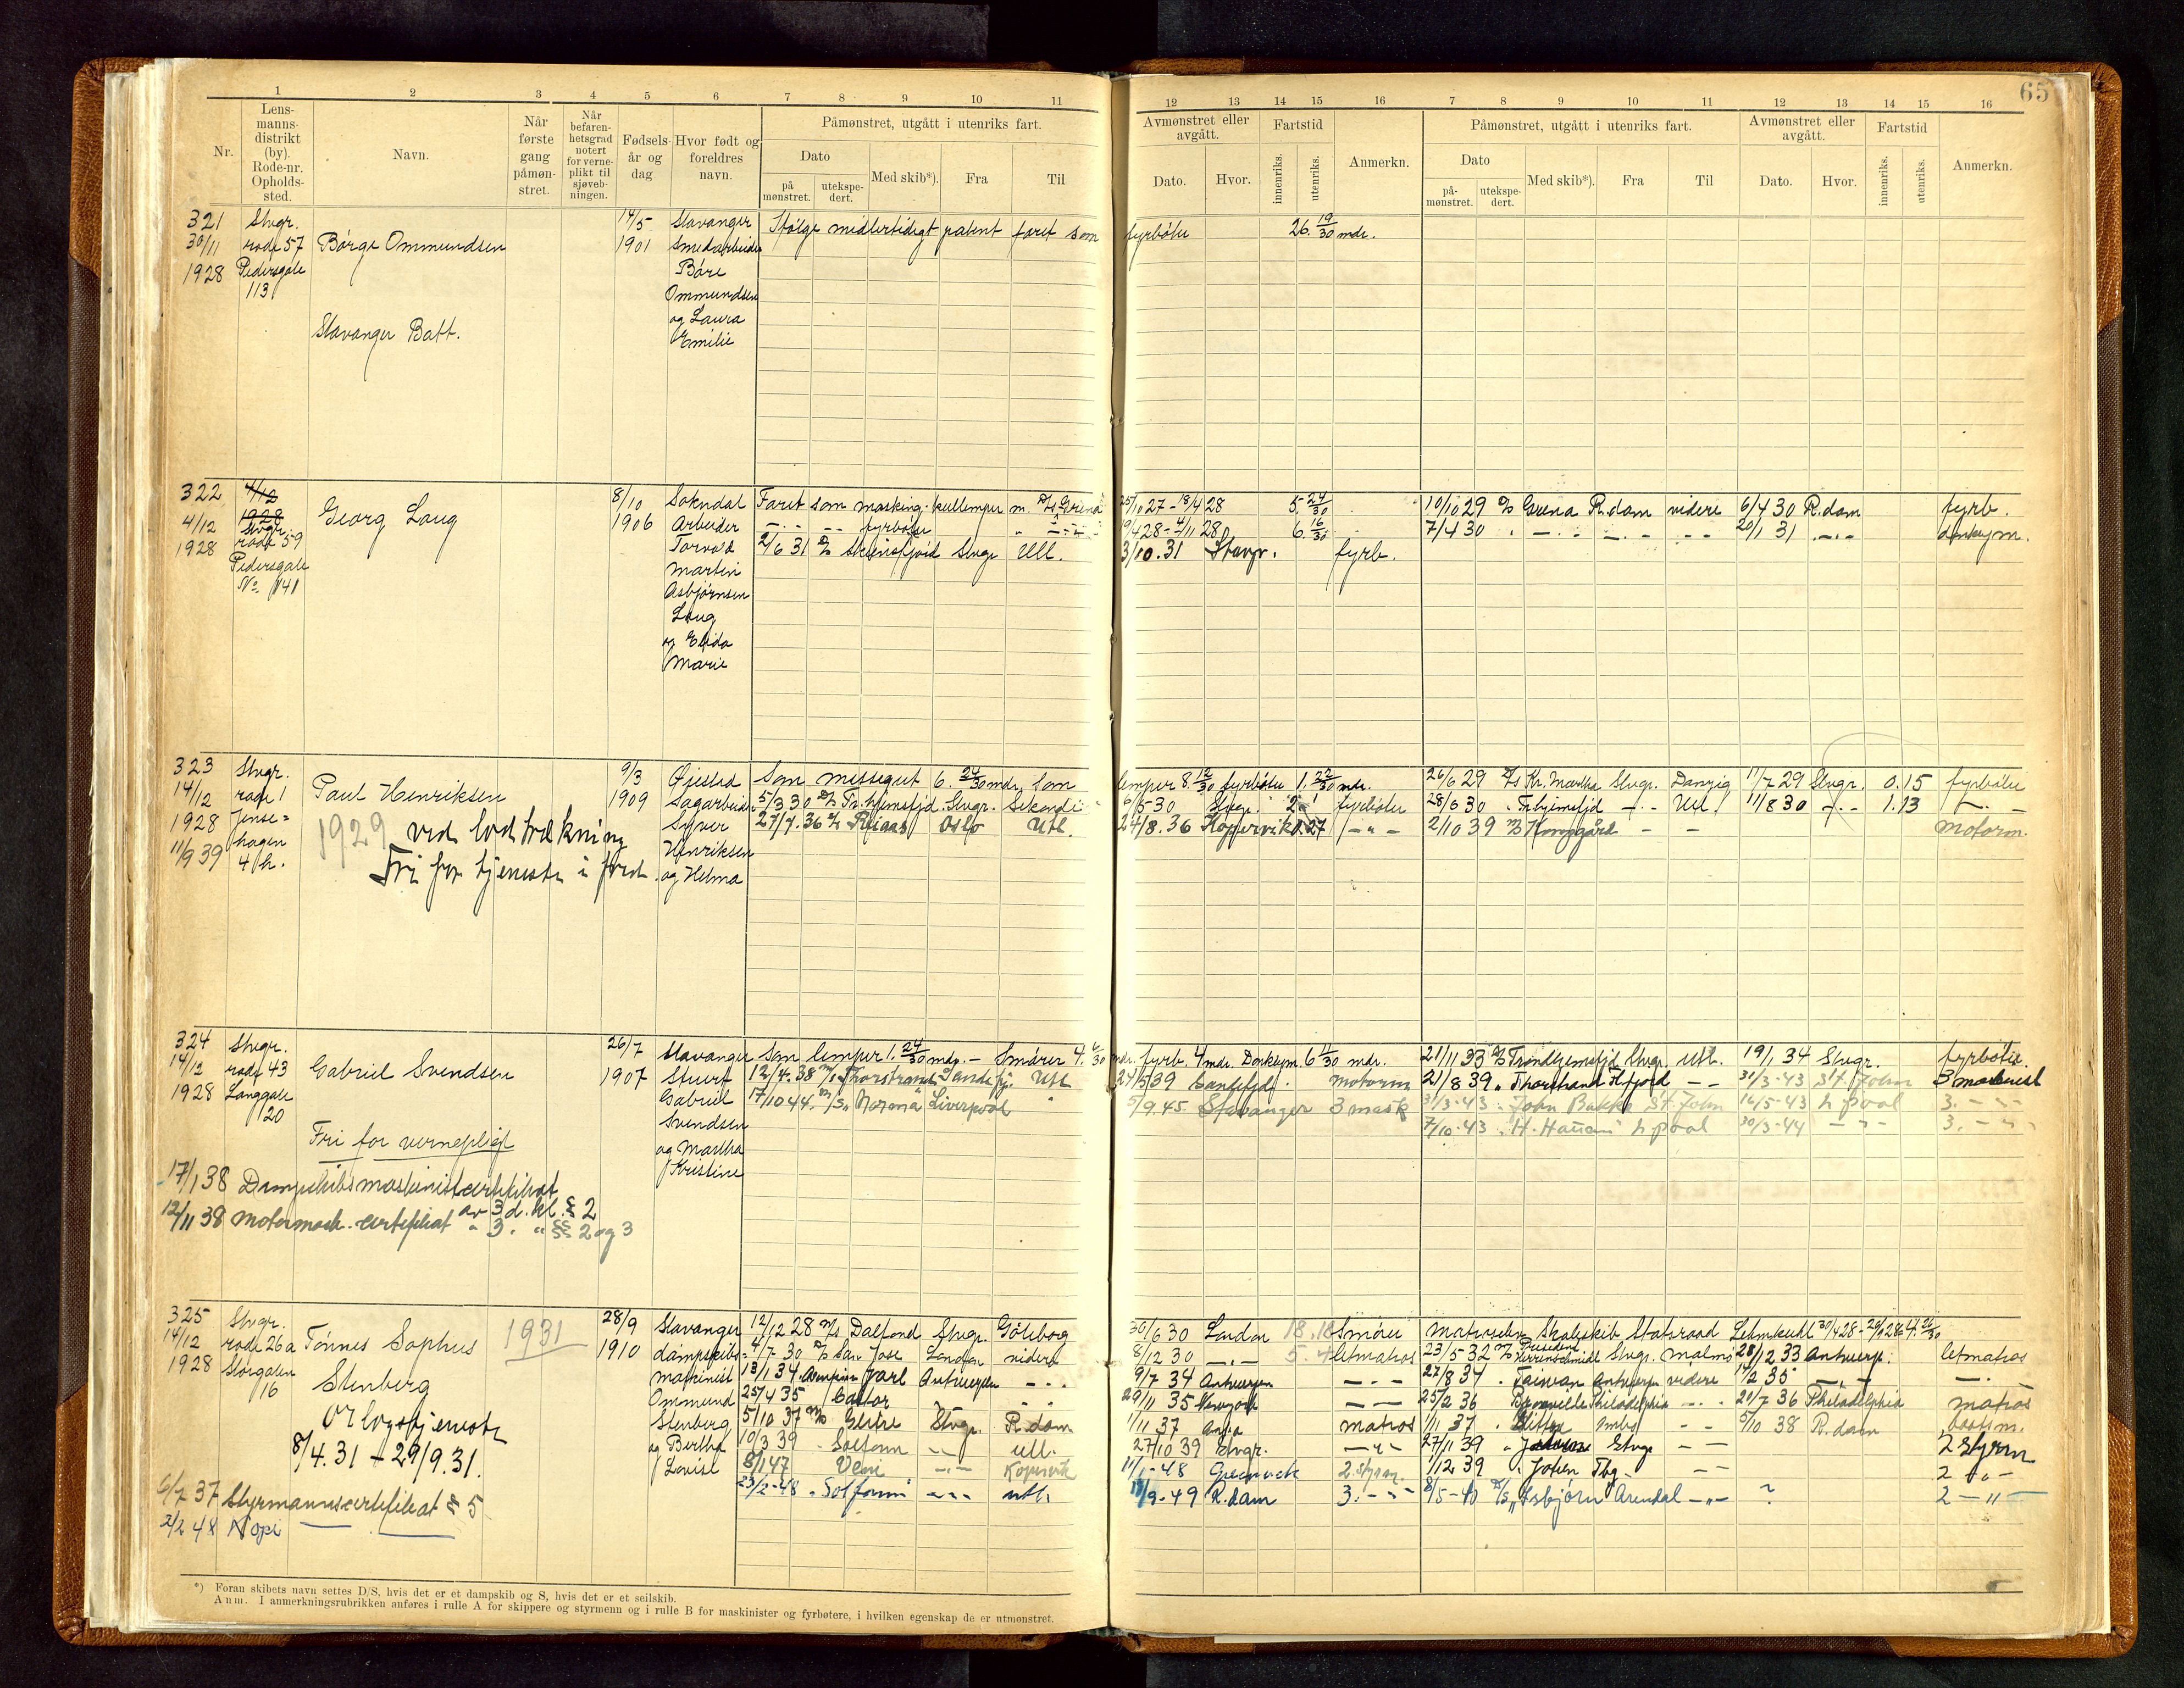 65
1 2 3 4 5 6 7 8 9 10 11 12 13 14 15 16 7 8 9 10 11 12 13 14 15 16
Nr.
Lens-
manns-
distrikt
(by).
Rode-nr.
Opholds-
sted.
Navn.
Når
første
gang
påmøn-
stret.
Når
befaren-
hetsgrad
notert
for verne-
plikt til
sjøveb-
ningen.
Fødsels-
år og
dag
Hvor født og
foreldres
navn.
Påmønstret, utgått i utenriks fart.
Dato
på
mønstret.
utekspe-
dert.
Med skib*).
Fra
Til
Avmønstret eller
avgått.
Dato.
Hvor.
Fartstid
innenriks.
utenriks.
Anmerkn.
Påmønstret, utgått i utenriks fart.
Dato
på-
mønstret.
utekspe-
dert.
Med skib*).
Fra
Til
Avmønstret eller
avgått.
Dato.
Hvor.
Fartstid
innenriks.
utenriks.
Anmerkn.
321 Stvgr. 14/5 Stavanger Ifølge midlertidigt patent faret som fyrbøter 26. 19/30 mdr.
30/11 rode 57 Børge Ommundsen 1901 Smedarbeider
1928 Pedersgate Båre
113 Ommundsen
og Laura
Stavanger Batt. Emilie
322 4/12 8/10 Sokndal Faret som masking. kullemper m. D/S Grena 25/10 27 - 18/4 28 5. 24/30 10/10 29 D/S Grena R.dam videre 6/4 30 R.dam fyrb.
4/12 1928 Georg Laug 1906 Arbeider -.- -- fyrbøter -.- 19/4 28 - 4/11 28 6. 16/30 7/4 30 -.- -.- -.- 20/1 31 -.- donkeym.
1928 Stvgr. rode 59 Torvald 2/6 31 D/S Skiensfjord Stvgr Utl. 3/10.31 Stavgr. fyrb.
Pedersgate Martin
No. 141 Asbjørnsen
Laug
og Elida
Marie
323 Stvgr. 9/3 Øiestad Som messegut 6. 24/30 mdr, Som lemper 8. 12/30 fyrbøter 1. 22/30 mdr. 26/6 29 D/S Kr. Martha Stvgr. Danzig 17/7 29 Stvgr. 0.15 fyrbøter
14/12 rode 1 Paul Henriksen 1909 Sagarbeider 5/3 30 D/S Tr.hjemsfjd. Stvgr. 6/5-30 Stvgr. 2 fyrbøter 28/6 30 Trhjemsfjd -.- Utl. 11/8 30 -.- 1.13 -.-
1928 Jense= Syver 27/7. 36 Oslo Utl. 24/8. 36 Kopervik 0.27 -"- 2/10 39 Kongsgård - - motorm.
11/9 39 hagen 1929 ved lodtrækning Henriksen
4 h. Fri for tjeneste i fred. og Helma
324 Stvgr. 26/7 Stavanger Som lemper 1. 24/30 mdr. - Smører 4. 6/30 mdr. fyrb. 4 mdr. Donkeym. 6 11/30 mdr. 21/11 33 D/S Trondhjemsfjd Stvgr. Utl. 19/1 34 Stvgr. fyrbøter
14/12 rode 43 Gabriel Svendsen 1907 Stuert 12/4. 38 M/S Thorstrand Sandefj. Utl 24/5 39 Sandefjd. motorm 21/8 39 " Thorstrand -- 31/3-43 St. John 3 maskinist
1928 Langgate Gabriel 17/10 44. M/S "Norma" Liverpool " 5/9.45. Stavanger 3 mask 31/3-43 " John Bakke St. John 16/5-43 L.pool 3. - " -
20 Svendsen 7/10-43 " H. Haueni L pool 30/3-44 -"- 3. - " -
Fri for vernepligt og Martha
Kristine
17/1 38 Dampskibsmaskinistcertifikat
av 3d. kl. § 2
12/11 38 Motormask. certifikat " 3. " §§ 2 og 3
325 Stvgr. 28/9 Stavanger 12/12 28 M/S Dalfonn Stvgr. Göteborg 30/6 30 London 18.18 Smører Matroselev Skoleskib Statsraad Lehmkuhl 30/4 28 - 29/9 28
14/12 rode 26a Tønnes Sophus 1931 1910 dampskibs- 4/7 30 D/S San Jose London videre 8/12 30 -"- 5. 4 letmatros 23/5 32 M/S President Herrenschmidt Stvgr. Malmø 28/12 33 Antwerp. letmatros
1928 Storgaten maskinist 13/1 34 Jarl Antwerpen -.- 9/7 34 Antwerpen -.- 27/8 34 " Taiwan Antwerp. videre 14/2 35 -"- -.-
16 Stenberg Ommund 25/4 35 Castor 29/11 35 Newyork -- 25/2 36 Philadelphia -.- 21/7 36 Philadelphia matros
Orlogstjeneste Stenberg 5/10 37 M/S Stvgr. R.dam 1/11 37 matros 1/11 37 5/10 38 R.dam
8/4.31 - 29/9.31. og Bertha 10/3 39 " Solfonn -- utl. 27/10 39 Stvgr. -"- 27/11 39 Stvgr -- 2 styrm
Lovise 8/1 47 Veni -.- Kopervik 11/1-48 2. styrm. 1/12 39 " Tbg. -- 2 -"-
6/7 37 Styrmannscertifikat § 5 23/2-48 " Solfonn --- utl. 13/9-49 R.dam 3. --- 8/5-40 D/S "Isbjørn Arendal -"- ? 2 -"-
2/2 48 Kopi
*) Foran skibets navn settes D/S, hvis det er et dampskib og S, hvis det er et seilskib.
Anm. I anmerkningsrubrikken anføres i rulle A for skippere og styrmenn og i rulle B for maskinister og fyrbøtere, i hvilken egenskap de er utmønstret.